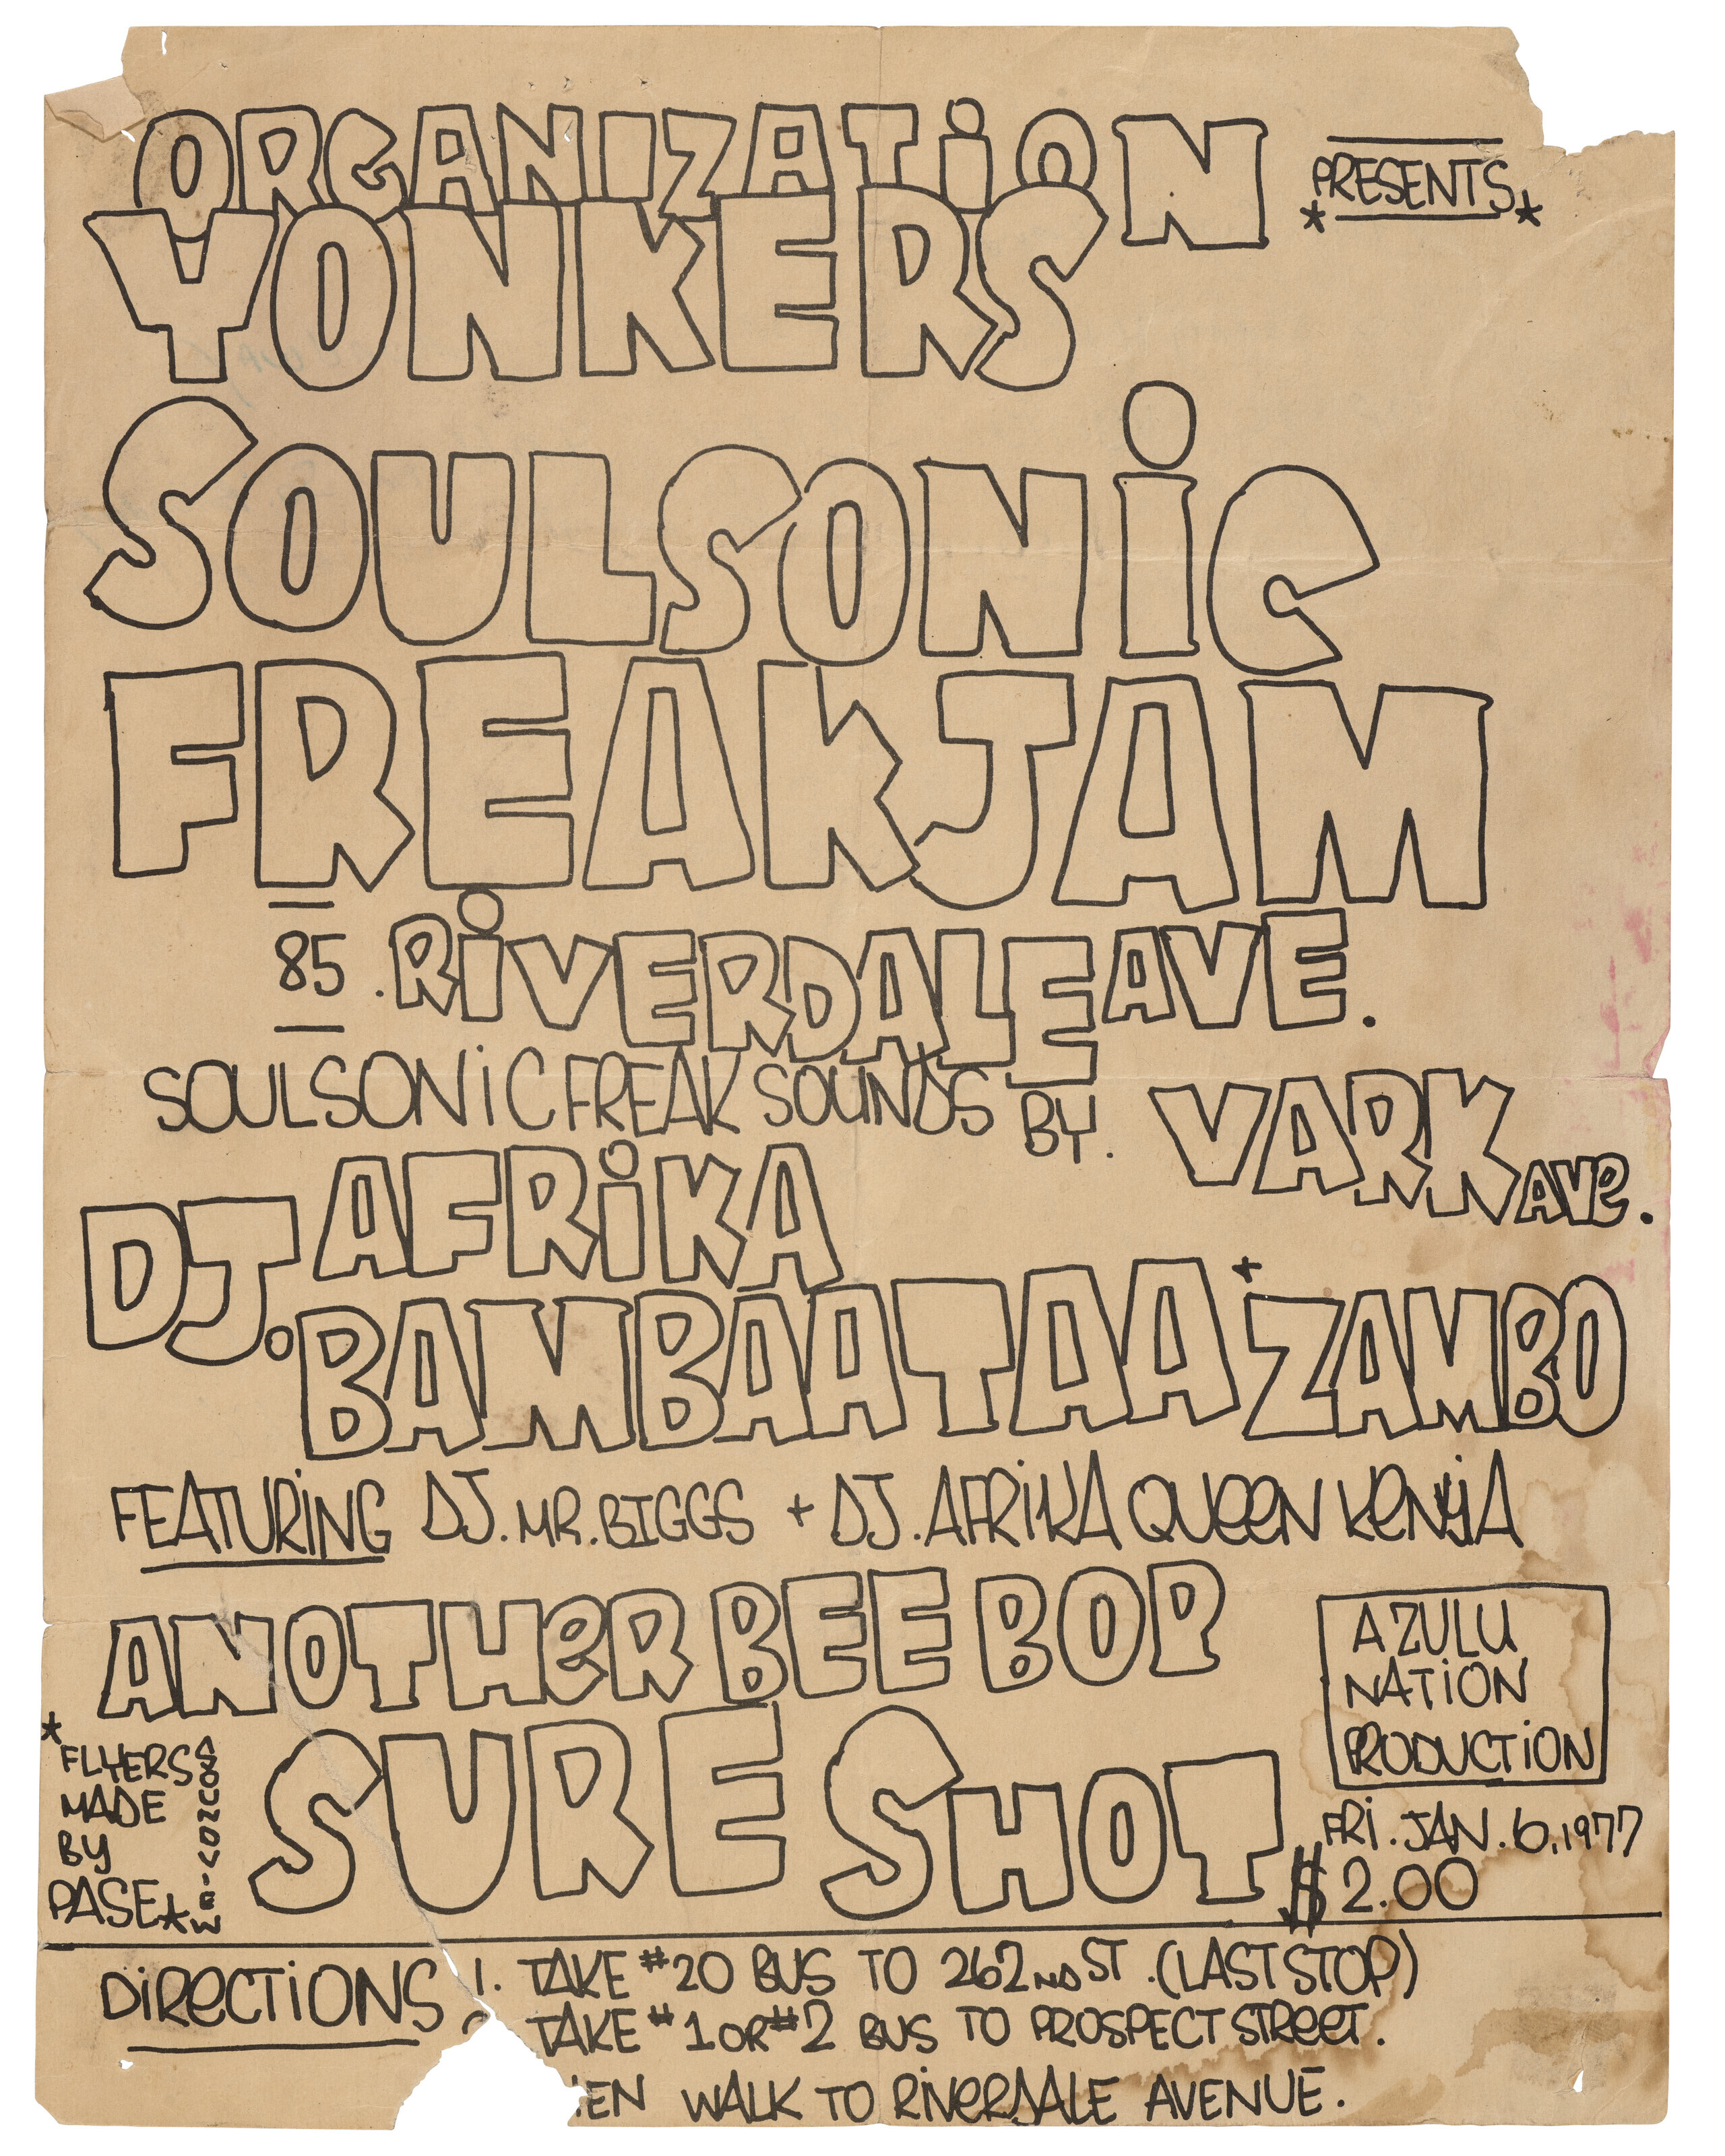 ORGANIZATION
YONKERS
*PRESENTS*
SOULSONIC
FREAKJAM
85. RIVERDALE AVE.
SOULSONIC FREAK SOUNDS BY. VARK AVE.
DJ. AFRIKA
BAMBAATAA + ZAMBO
FEATURING DJ. MR. BIGGS + DJ. AFRIKA QUEEN KENYA
ANOTHER BEE BOP
SURE SHOT
A ZULU
NATION
PRODUCTION
* FLYERS
MADE
BY
PASE *
SOUNDVIEW
FRI. JAN. 6, 1977
$2.00
DIRECTIONS 1. TAKE #20 BUS TO 262ND ST. (LAST STOP)
TAKE #1 OR #2 BUS TO PROSPECT STREET.
WALK TO RIVERDALE AVENUE.